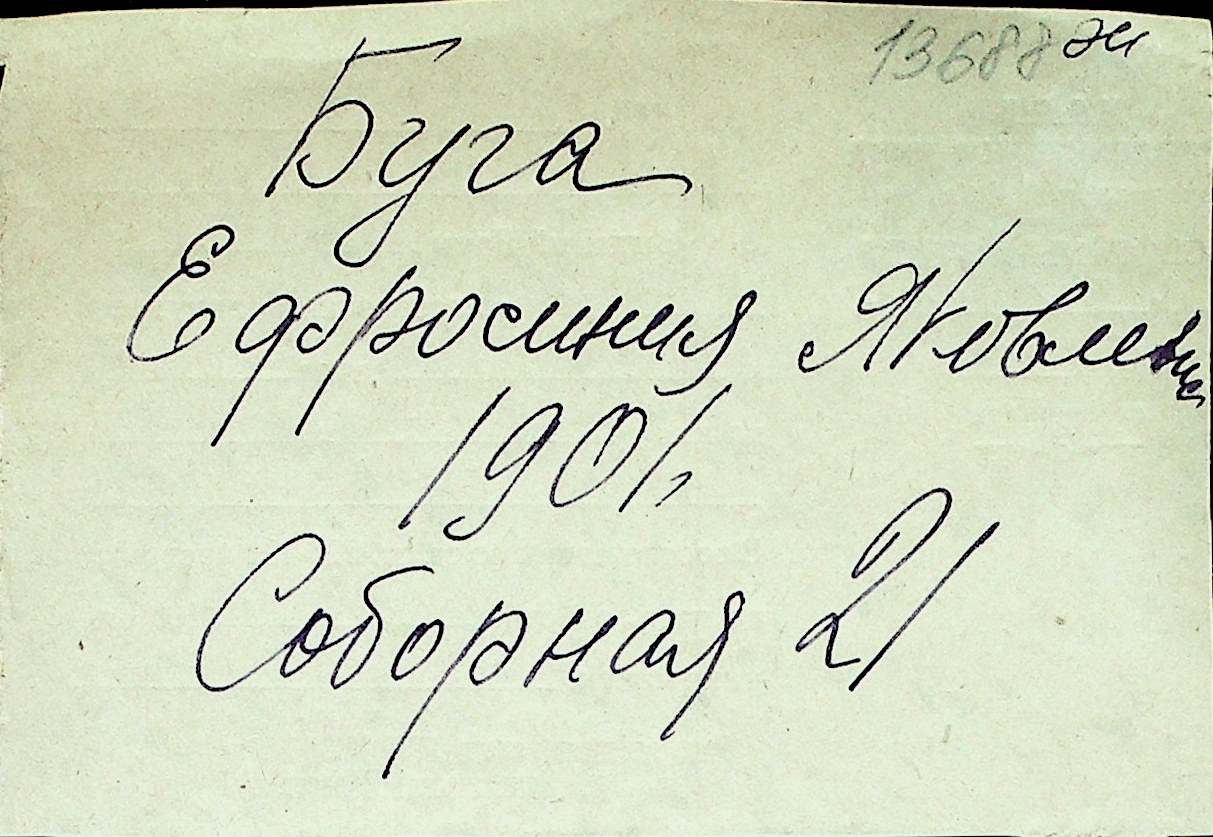 13688 эи
Буга
Ефросиния Яковлевна
1901,
Соборная 21